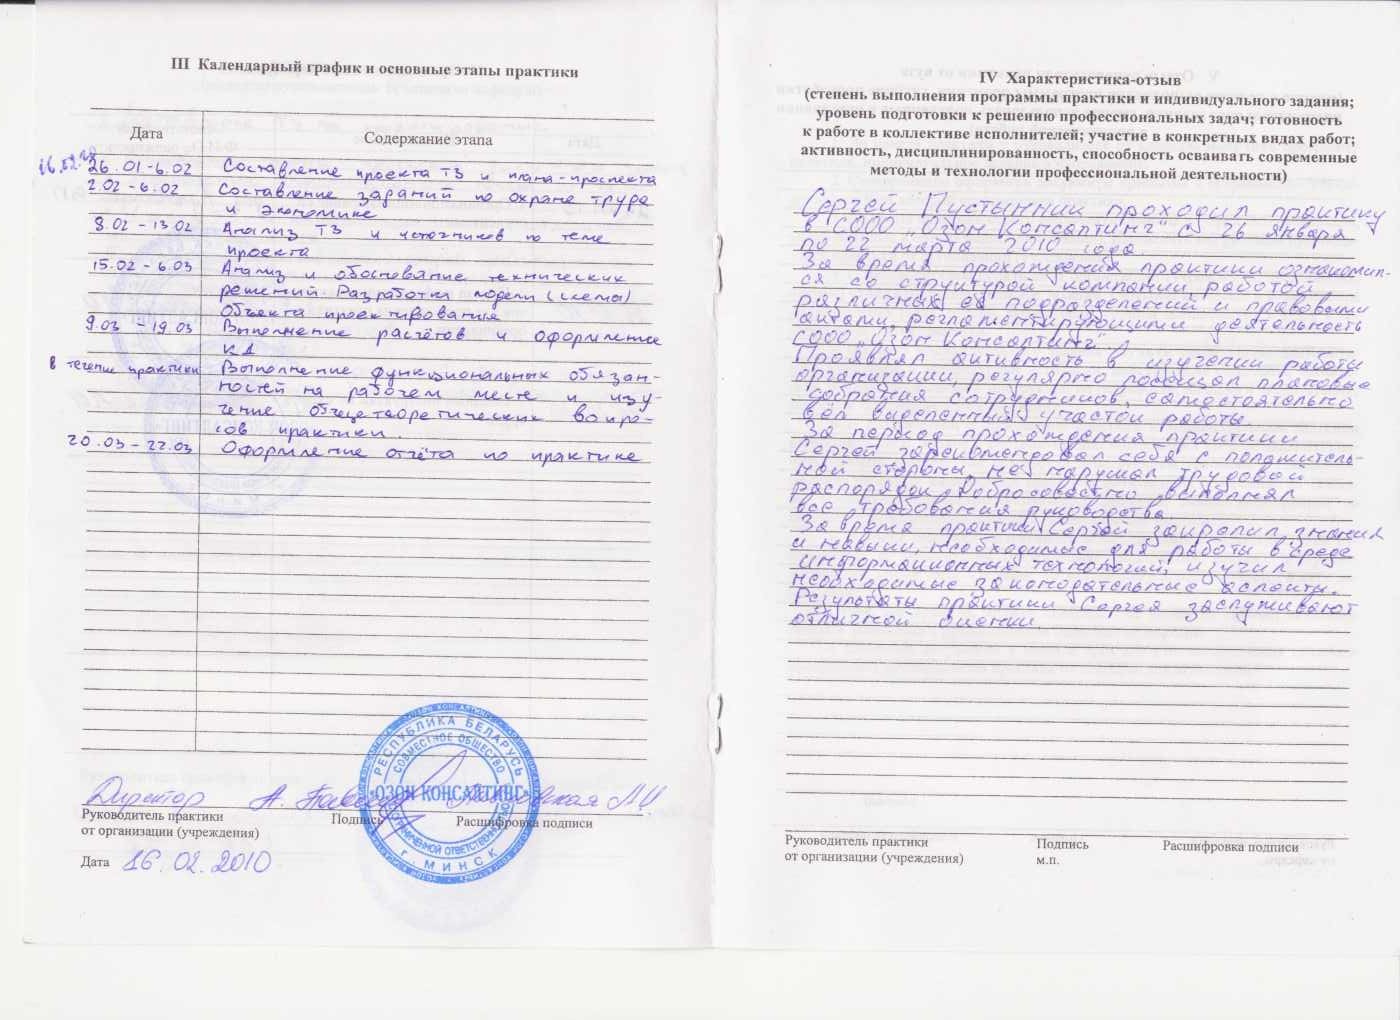 III Календарный график и основные этапы практики
Дата
Содержание этапа
26.01-6.02 Составление проекта ТЗ и плана-проспекта
2.02-6.02 Составление заданий по охране труда
и экономике
8.02-13.02 Анализ ТЗ и источников по теме
проекта
15.02-6.03 Анализ и обоснование технических
решений. Разработка модели (схемы)
объекта проектирования
9.03-19.03 Выполнение расчётов и оформление
КД
в течение практики Выполнение функциональных обязан-
ностей на рабочем месте и изу-
чение общетеоретических вопро-
сов практики.
20.03-22.03 Оформление отчёта по практике
РЕСПУБЛИКА БЕЛАРУСЬ
СОВМЕСТНОЕ ОБЩЕСТВО
«ОЗОН КОНСАЛТИНГ»
ОГРАНИЧЕННОЙ ОТВЕТСТВЕННОСТЬЮ
г. МИНСК
Директор
Руководитель практики Подпись Расшифровка подписи
от организации (учреждения)
Дата 16.02.2010
IV Характеристика-отзыв
(степень выполнения программы практики и индивидуального задания;
уровень подготовки к решению профессиональных задач; готовность
к работе в коллективе исполнителей; участие в конкретных видах работ;
активность, дисциплинированность, способность осваивать современные
методы и технологии профессиональной деятельности)
Сергей Пустынник проходил практику
в СООО „Озон Консалтинг" с 26 января
по 22 марта 2010 года.
За время прохождения практики ознакомил-
ся со структурой компании, работой
различных её подразделений и правовыми
актами, регламентирующими деятельность
СООО „Озон Консалтинг".
Проявлял активность в изучении работы
организации, регулярно посещал плановые
собрания сотрудников, самостоятельно
вёл выделенный участок работы.
За период прохождения практики
Сергей зарекомендовал себя с положитель-
ной стороны, не нарушал трудовой
распорядок, добросовестно выполнял
все требования руководства.
За время практики Сергей закрепил знания
и навыки, необходимые для работы в среде
информационных технологий, изучил
необходимые законодательные аспекты.
Результаты практики Сергея заслуживают
отличной оценки.
Руководитель практики Подпись Расшифровка подписи
от организации (учреждения) м.п.